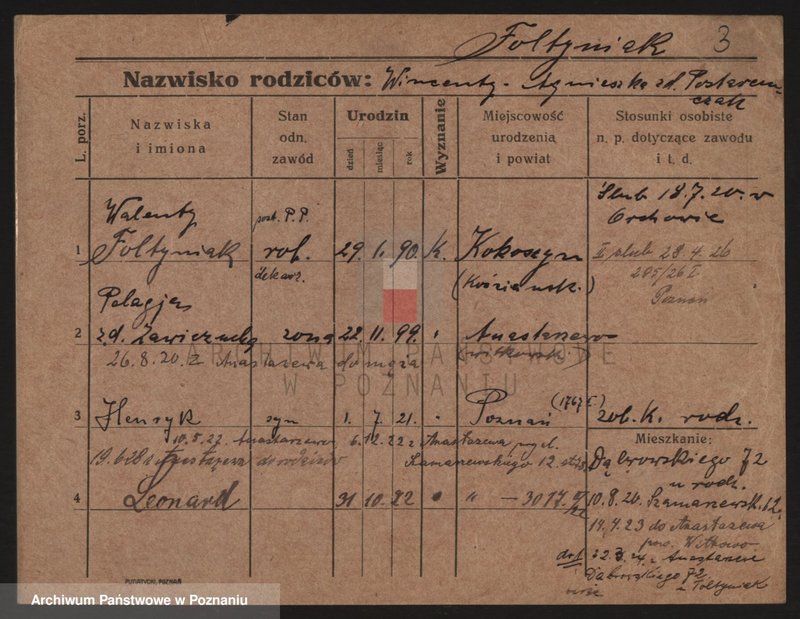 Foltyniak 3
Nazwisko rodziców: Wincenty - Agnieszka z d.
L. porz.
Nazwiska
i imiona
Stan
odn.
zawód
Urodzin
dzień
miesiąc
rok
Wyznanie
Miejscowość
urodzenia
i powiat
Stosunki osobiste
n. p. dotyczące zawodu
i t. d.
Walenty
1 Foltyniak rob. 29. 1. 90. k. Kokoszyn
Ślub 18.7.20. w
Orchowie
II ślub 28.4.26
285/26 I
Poznań
Pelagja
2 z.d. Zawieruchy żona 22. 11. 99. " Anastazewo
26.8.20. z Anastazewa do męża
ARCHIWUM PAŃSTWOWE
W POZNANIU
3 Henryk syn 1. 7. 21. " Poznań zob. K. rodz.
Mieszkanie:
10.8.22. Anastazewo 6.12.22 z Anastazewa
do rodziców Szamarzewskiego 12.
Dąbrowskiego 72
u rodz.
4 Leonard 31 10. 22 " "
Szamarzewsk. 12
do Anastazewa
pow. Witkowo
Anastazewo
Dąbrowskiego 72
z Foltyniak
PUTIATYCKI, POZNAŃ
Archiwum Państwowe w Poznaniu